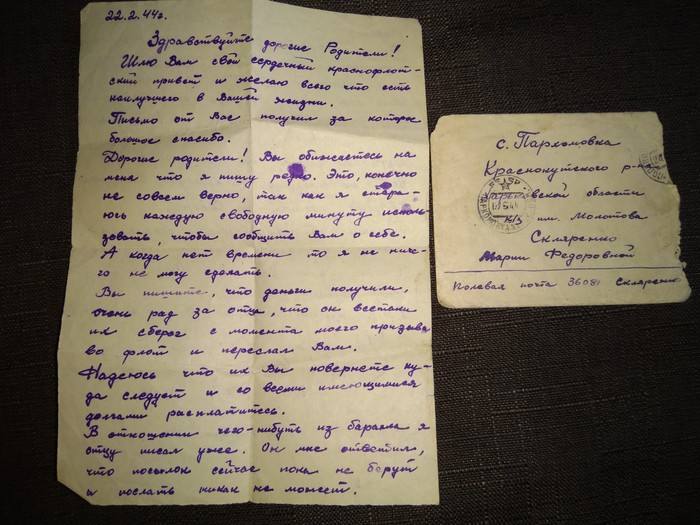 22.2.44г.
Здравствуйте дорогие Родители!
Шлю Вам свой сердечный краснофлот-
ский привет и желаю всего что есть
наилучшего в Вашей жизни.
Письмо от Вас получил за которое
большое спасибо.
Дорогие родители! Вы обижаетесь на
меня что я пишу редко. Это, конечно
не совсем верно, так как я стара-
юсь каждую свободную минуту исполь-
зовать, чтобы сообщить Вам о себе.
А когда нет времени то я не ниче-
го не могу сделать.
Вы пишите, что деньги получили,
очень рад за отца, что он всетаки
их сберег с момента моего призыва
во флот и переслал Вам.
Надеюсь что их Вы повернете ку-
да следует и со всеми имеющимися
долгами расплатитесь.
В отношении чего-нибуть из барахла я
отцу писал уже. Он мне ответил,
что посылок сейчас пока не берут
и послать никак не может.
с. Пархомовка
Краснокутского р-на
Харьковской области
к/з им. Молотова
Скляренко
Марии Федоровной
Полевая почта 36081 Скляренко